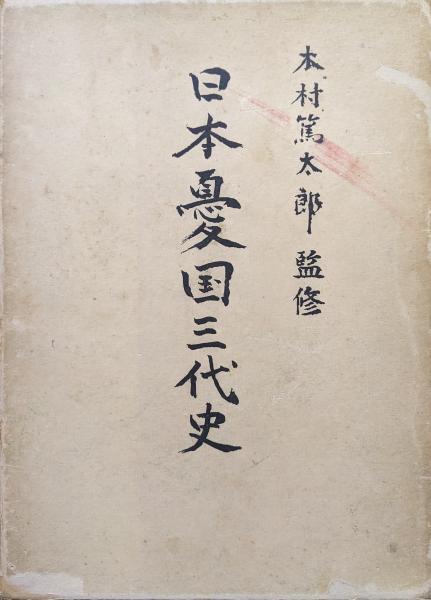 木村篤太郎 監修
日本憂国三代史